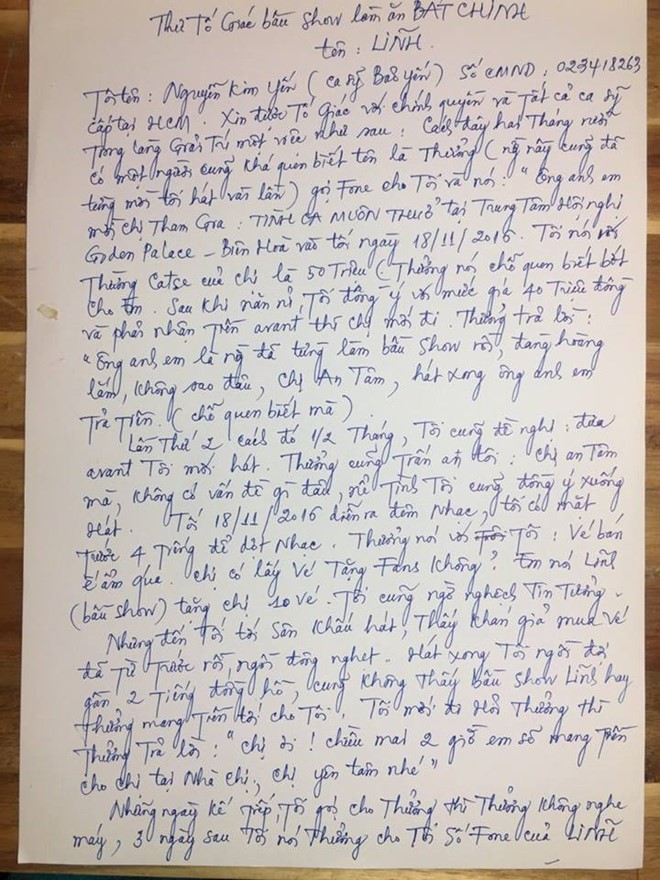 Thư Tố Giác bầu show làm ăn BẤT CHÍNH
tên : LINH.
Tôi tên : Nguyễn Kim Yến ( ca sỹ Bảo Yến ) Số CMND : 023418263
cấp tại HCM. Xin được Tố Giác với chính quyền và Tất cả ca sỹ
Trong làng Giải Trí một việc như sau : Cách đây hai Tháng rưỡi
có một người cũng khá quen biết tên là Thưởng ( này cũng đã
từng mời tôi hát vài lần ) gọi Fone cho Tôi và nói : " Ông anh em
mời chị Tham Gia : TÌNH CA MUÔN THUỞ tại Trung Tâm Hội nghị
Goden Palace - Biên Hoà vào tối ngày 18/11/2016. Tôi nói với
Thưởng Catse của chị là 50 Triệu ( Thưởng nói chỗ quen biết bớt
cho em. Sau khi năn nỉ, Tôi đồng ý với mức giá 40 Triệu đồng
và phải nhận Tiền avant thì chị mới đi. Thưởng trả lời :
" Ông anh em là đã từng làm bầu show rồi, đàng hoàng
lắm, không sao đâu, chị An Tâm, hát xong ông anh em
Trả Tiền. ( chỗ quen biết mà )
Lần Thứ 2 cách đó 1/2 Tháng, Tôi cũng đề nghị : đưa
avant Tôi mới hát. Thưởng cũng Trấn an tôi : chị an Tâm
mà, không có vấn đề gì đâu, nể Tình Tôi cũng đồng ý xuống
Hát. Tối 18/11/2016 diễn ra đêm Nhạc, tôi có mặt
Trước 4 Tiếng để dợt Nhạc. Thưởng nói với Tôi : Vé bán
ế ẩm quá. chị có lấy vé Tặng Fans không ? Em nói Linh
(bầu show) tặng chị 10 vé. Tôi cũng ngờ nghệch Tin Tưởng.
Nhưng đến Tối tới Sân Khấu hát, Thấy khán giả mua vé
đã Từ Trước rồi, ngồi đông nghẹt. Hát xong Tôi ngồi đợi
gần 2 Tiếng đồng hồ, cũng không Thấy bầu show Linh hay
Thưởng mang Tiền tới cho Tôi. Tôi mới đi Hỏi Thưởng thì
Thưởng Trả lời : " chị ơi ! chiều mai 2 giờ em sẽ mang Tiền
cho chị tại Nhà chị, chị yên tâm nhé "
Những ngày kế tiếp, Tôi gọi cho Thưởng thì Thưởng không nghe
máy, 3 ngày sau Tôi nói Thưởng cho Tôi Số Fone của LINH